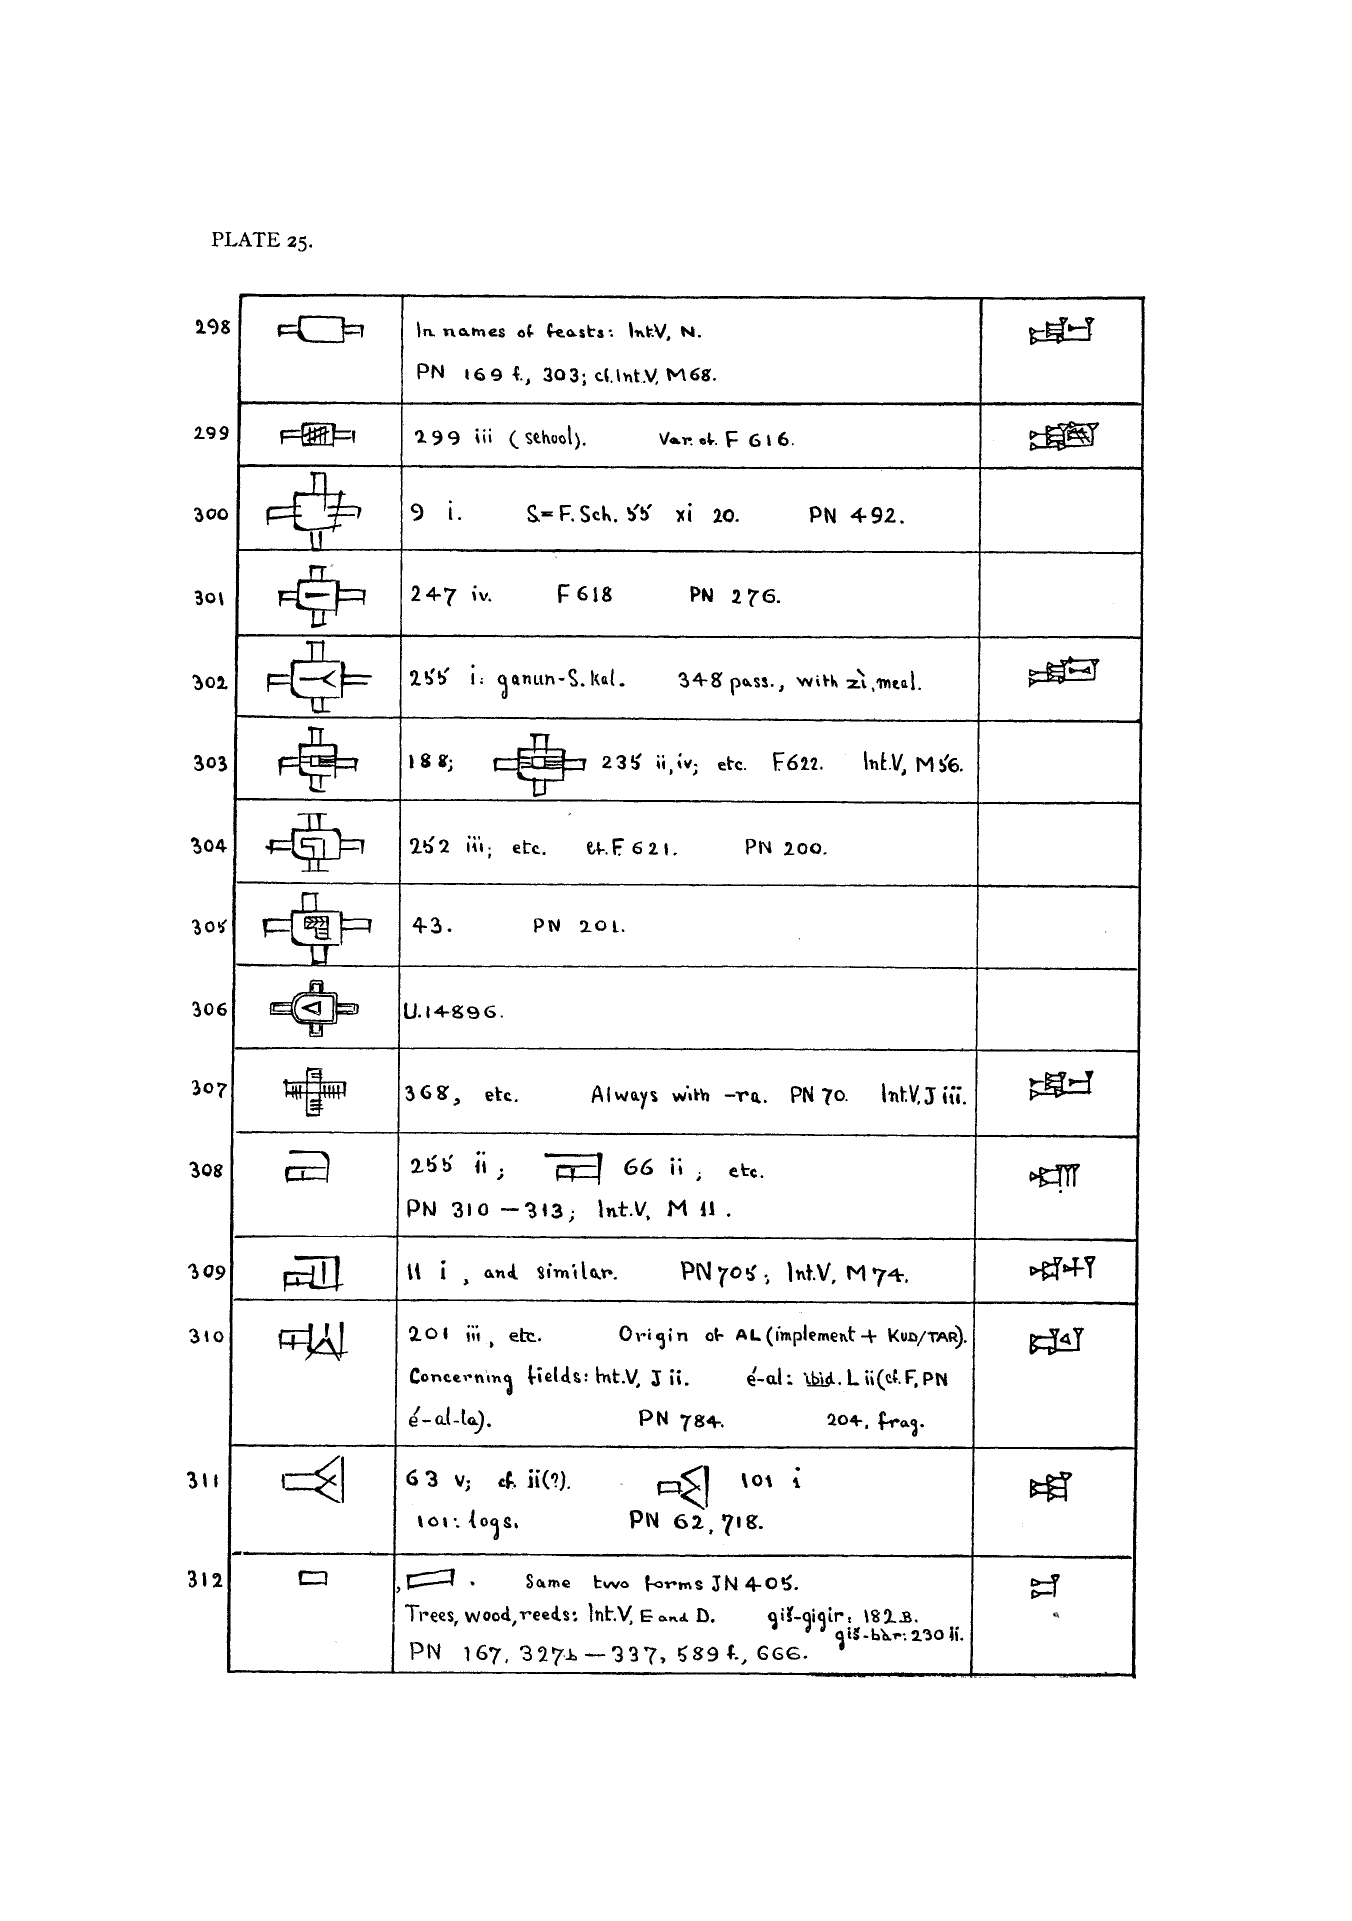 PLATE 25.
298 In names of feasts: Int.V, N.
PN 169 f., 303; cf. Int.V, M 68.
299 299 iii (school). Var. of. F 616.
300 9 i. S.=F. Sch. 55 xi 20. PN 492.
301 247 iv. F 618 PN 276.
302 255 i: ganun-S. kal. 348 pass., with zì, meal.
303 188; 235 ii, iv; etc. F.622. Int.V, M 56.
304 252 iii; etc. cf. F. 621. PN 200.
305 43. PN 201.
306 U.14896.
307 368, etc. Always with -ra. PN 70. Int.V, J iii.
308 255 ii; 66 ii; etc.
PN 310 — 313; Int.V, M 11.
309 11 i, and similar. PN 705; Int.V, M 74.
310 201 iii, etc. Origin of AL (implement + KUD/TAR).
Concerning fields: Int.V, J ii. é-al: ibid. L ii (cf. F, PN
é-al-la). PN 784. 204, frag.
311 63 v; cf. ii(?). 101 i
101: logs. PN 62, 718.
312 , . Same two forms JN 405.
Trees, wood, reeds: Int.V, E and D. giš-gigir: 182 B.
giš-bàr: 230 ii.
PN 167, 327b — 337, 589 f., 666.